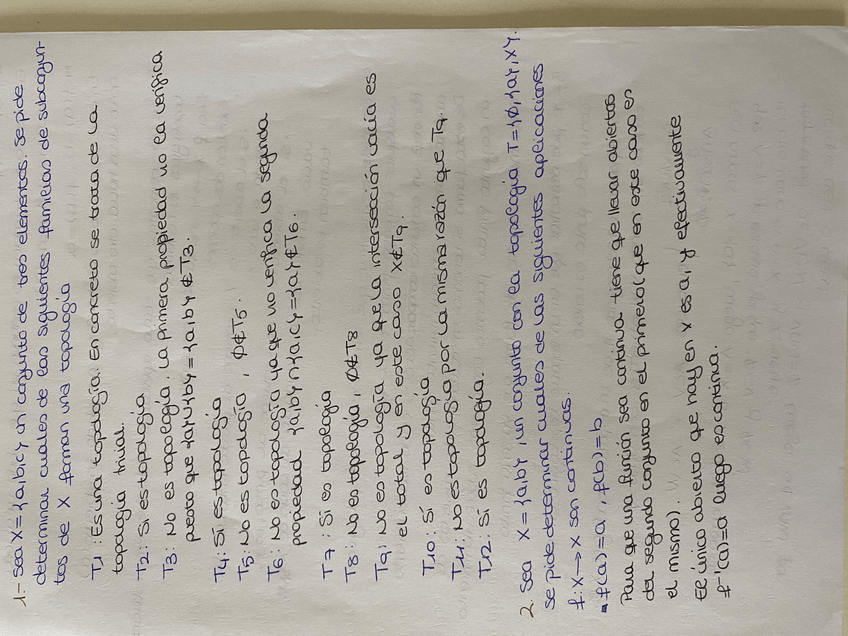 1.- Sea X={a,b,c} un conjunto de tres elementos. Se pide
determinar cuales de las siguientes familias de subconjun-
tos de X forman una topología
T1: Es una topología. En concreto se trata de la
topología trivial.
T2: Sí es topología
T3: No es topología. La primera propiedad no la verifica
puesto que {a}∪{b}={a,b}∉T3.
T4: Sí es topología
T5: No es topología, ∅∉T5.
T6: No es topología ya que no verifica la segunda
propiedad {a,b}∩{a,c}={a}∉T6.
T7: Sí es topología
T8: No es topología, ∅∉T8
T9: No es topología ya que la intersección vacía es
el total y en este caso X∉T9.
T10: Sí es topología
T11: No es topología por la misma razón que T9.
T12: Sí es topología.
2. Sea X={a,b}, un conjunto con la topología T={∅,{a},X}.
Se pide determinar cuales de las siguientes aplicaciones
f:X→X son continuas.
▪ f(a)=a, f(b)=b
Para que una función sea continua tiene que llevar abiertos
del segundo conjunto en el primero (que en este caso es
el mismo).
El único abierto que hay en X es a, y efectivamente
f⁻¹(a)=a luego es continua.